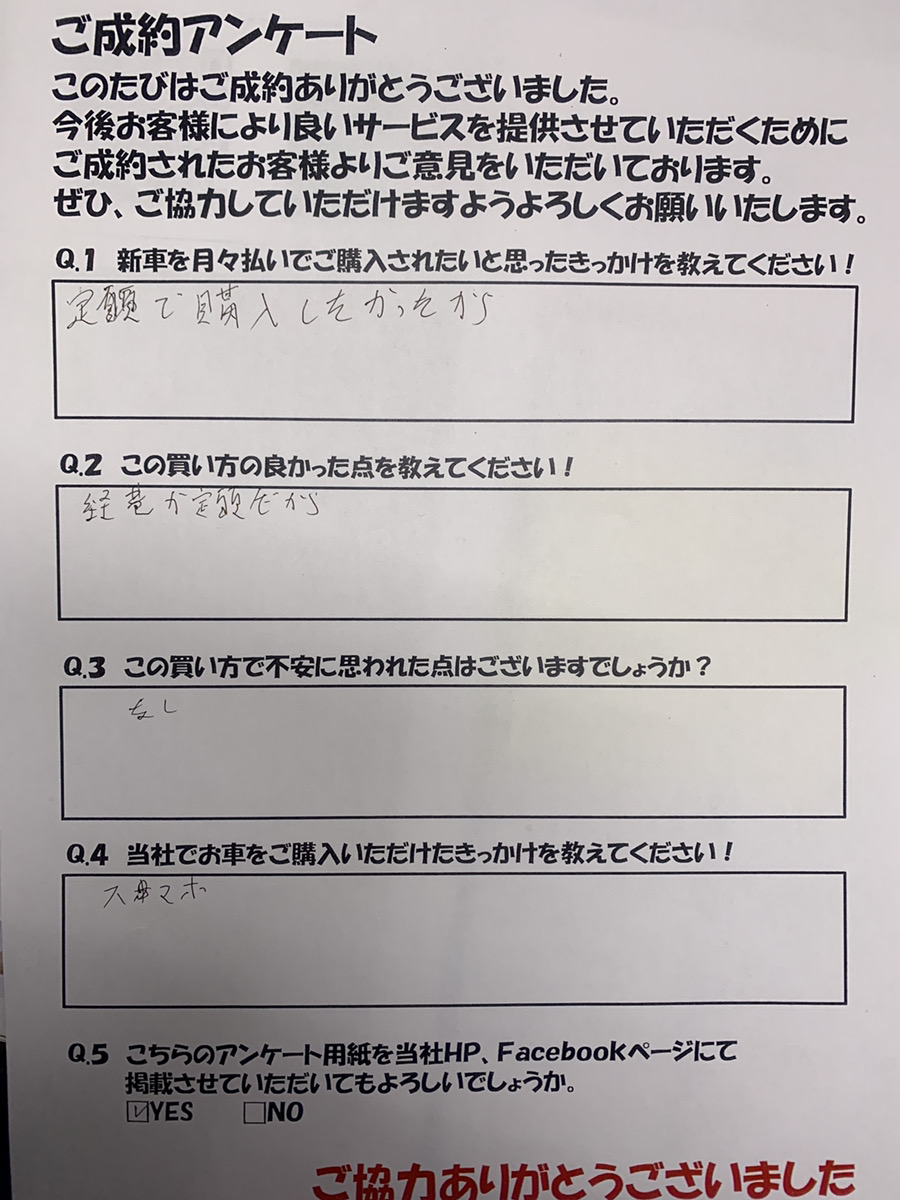 ご成約アンケート
このたびはご成約ありがとうございました。
今後お客様により良いサービスを提供させていただくために
ご成約されたお客様よりご意見をいただいております。
ぜひ、ご協力していただけますようよろしくお願いいたします。
Q.1 新車を月々払いでご購入されたいと思ったきっかけを教えてください!
定額で購入したかったから
Q.2 この買い方の良かった点を教えてください!
経費が定額だから
Q.3 この買い方で不安に思われた点はございますでしょうか?
なし
Q.4 当社でお車をご購入いただけたきっかけを教えてください!
スマホ
Q.5 こちらのアンケート用紙を当社HP、Facebookページにて
掲載させていただいてもよろしいでしょうか。
☑YES □NO
ご協力ありがとうございました